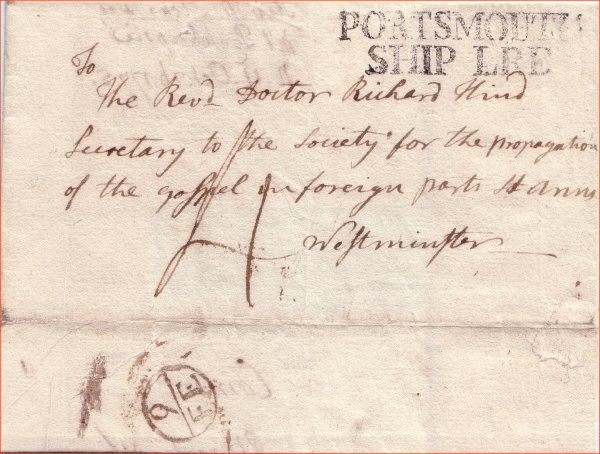 PORTSMOUTH
SHIP LRE
To
The Revd Doctor Richard Hind
Secretary to the Society for the propagation
of the gospel in foreign parts St Anns
Westminster
4
9
FE